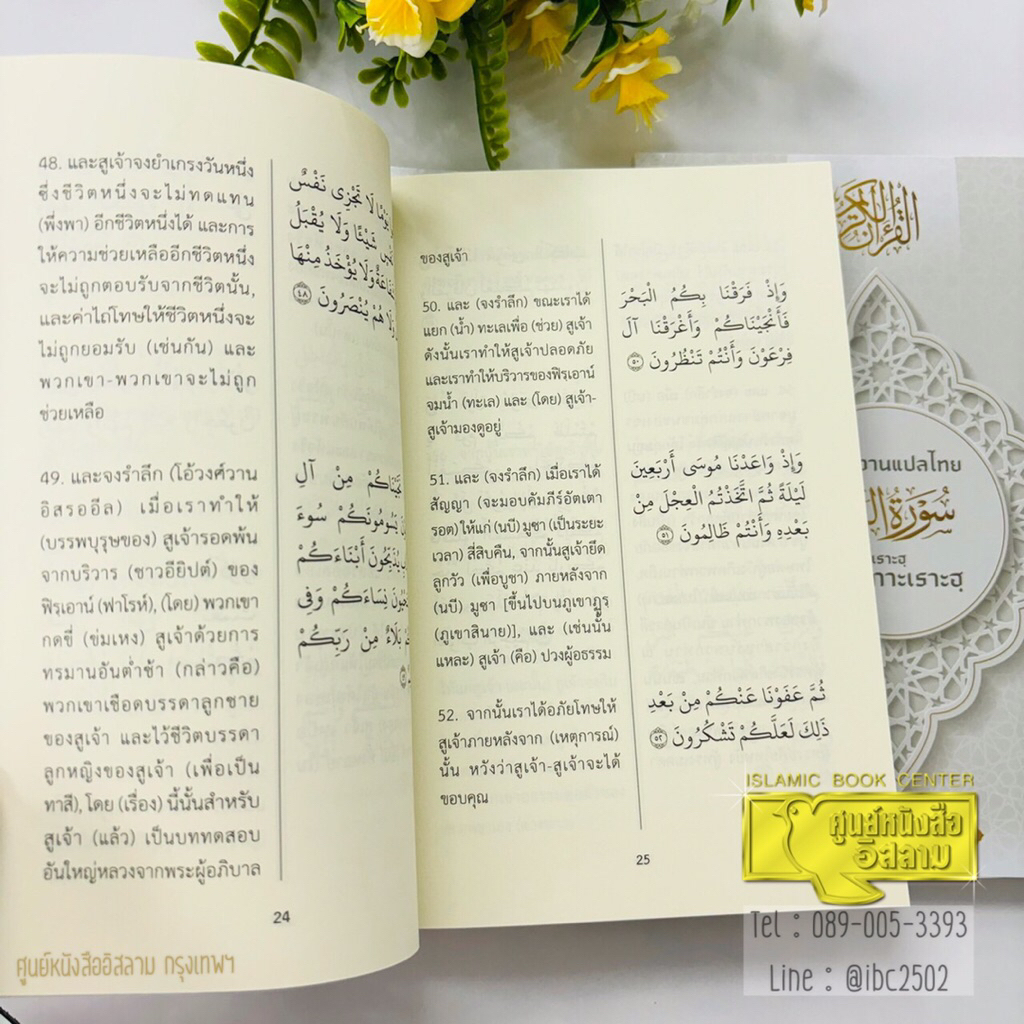 48. และสูเจ้าจงยำเกรงวันหนึ่ง
ซึ่งชีวิตหนึ่งจะไม่ทดแทน
(พึ่งพา) อีกชีวิตหนึ่งได้ และการ
ให้ความช่วยเหลืออีกชีวิตหนึ่ง
จะไม่ถูกตอบรับจากชีวิตนั้น,
และค่าไถ่โทษให้ชีวิตหนึ่งจะ
ไม่ถูกยอมรับ (เช่นกัน) และ
พวกเขา-พวกเขาจะไม่ถูก
ช่วยเหลือ
لَا تَجْزِى نَفْسٌ
شَيْئًا وَلَا يُقْبَلُ
وَلَا يُؤْخَذُ مِنْهَا
هُمْ يُنْصَرُونَ ٤٨
49. และจงรำลึก (โอ้วงศ์วาน
อิสรออีล) เมื่อเราทำให้
(บรรพบุรุษของ) สูเจ้ารอดพ้น
จากบริวาร (ชาวอียิปต์) ของ
ฟิรฺเอาน์ (ฟาโรห์), (โดย) พวกเขา
กดขี่ (ข่มเหง) สูเจ้าด้วยการ
ทรมานอันต่ำช้า (กล่าวคือ)
พวกเขาเชือดบรรดาลูกชาย
ของสูเจ้า และไว้ชีวิตบรรดา
ลูกหญิงของสูเจ้า (เพื่อเป็น
ทาสี), โดย (เรื่อง) นี้นั้นสำหรับ
สูเจ้า (แล้ว) เป็นบททดสอบ
อันใหญ่หลวงจากพระผู้อภิบาล
مِنْ آلِ
يَسُومُونَكُمْ سُوءَ
يُذَبِّحُونَ أَبْنَاءَكُمْ
نِسَاءَكُمْ وَفِى
بَلَاءٌ مِنْ رَبِّكُمْ
24
ของสูเจ้า
50. และ (จงรำลึก) ขณะเราได้
แยก (น้ำ) ทะเลเพื่อ (ช่วย) สูเจ้า
ดังนั้นเราทำให้สูเจ้าปลอดภัย
และเราทำให้บริวารของฟิรฺเอาน์
จมน้ำ (ทะเล) และ (โดย) สูเจ้า-
สูเจ้ามองดูอยู่
وَإِذْ فَرَقْنَا بِكُمُ الْبَحْرَ
فَأَنْجَيْنَاكُمْ وَأَغْرَقْنَا آلَ
فِرْعَوْنَ وَأَنْتُمْ تَنْظُرُونَ ٥٠
51. และ (จงรำลึก) เมื่อเราได้
สัญญา (จะมอบคัมภีร์อัตเตา
รอต) ให้แก่ (นบี) มูซา (เป็นระยะ
เวลา) สี่สิบคืน, จากนั้นสูเจ้ายึด
ลูกวัว (เพื่อบูชา) ภายหลังจาก
(นบี) มูซา [ขึ้นไปบนภูเขาฏูรฺ
(ภูเขาสินาย)], และ (เช่นนั้น
แหละ) สูเจ้า (คือ) ปวงผู้อธรรม
وَإِذْ وَاعَدْنَا مُوسَى أَرْبَعِينَ
لَيْلَةً ثُمَّ اتَّخَذْتُمُ الْعِجْلَ مِنْ
بَعْدِهِ وَأَنْتُمْ ظَالِمُونَ ٥١
52. จากนั้นเราได้อภัยโทษให้
สูเจ้าภายหลังจาก (เหตุการณ์)
นั้น หวังว่าสูเจ้า-สูเจ้าจะได้
ขอบคุณ
ثُمَّ عَفَوْنَا عَنْكُمْ مِنْ بَعْدِ
ذَلِكَ لَعَلَّكُمْ تَشْكُرُونَ ٥٢
25
القرآن الكريم
วานแปลไทย
سُورَةُ
เราะฮฺ
กาะเราะฮฺ
ISLAMIC BOOK CENTER
ศูนย์หนังสือ
อิสลาม
Tel : 089-005-3393
Line : @ibc2502
ศูนย์หนังสืออิสลาม กรุงเทพฯ